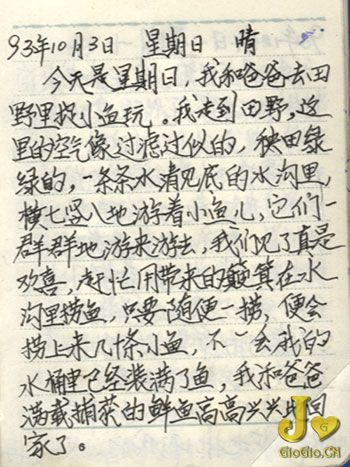 93年10月3日 星期日 晴
今天是星期日,我和爸爸去田
野里捉小鱼玩。我走到田野,这
里的空气像过滤过似的,秧田绿
绿的,一条条水清见底的水沟里,
横七竖八地游着小鱼儿,它们一
群群地游来游去,我们见了真是
欢喜,赶忙用带来的簸箕在水
沟里捞鱼,只要随便一捞,便会
捞上来几十条小鱼,不一会我的
水桶里已经装满了鱼,我和爸爸
满载捕获的鲜鱼高高兴兴地回
家了。
JG
GioGio.CN